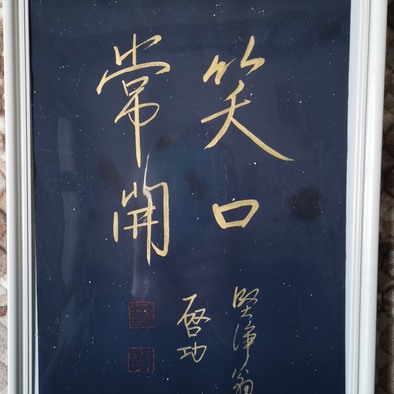 笑口
常開
堅净翁
啓功